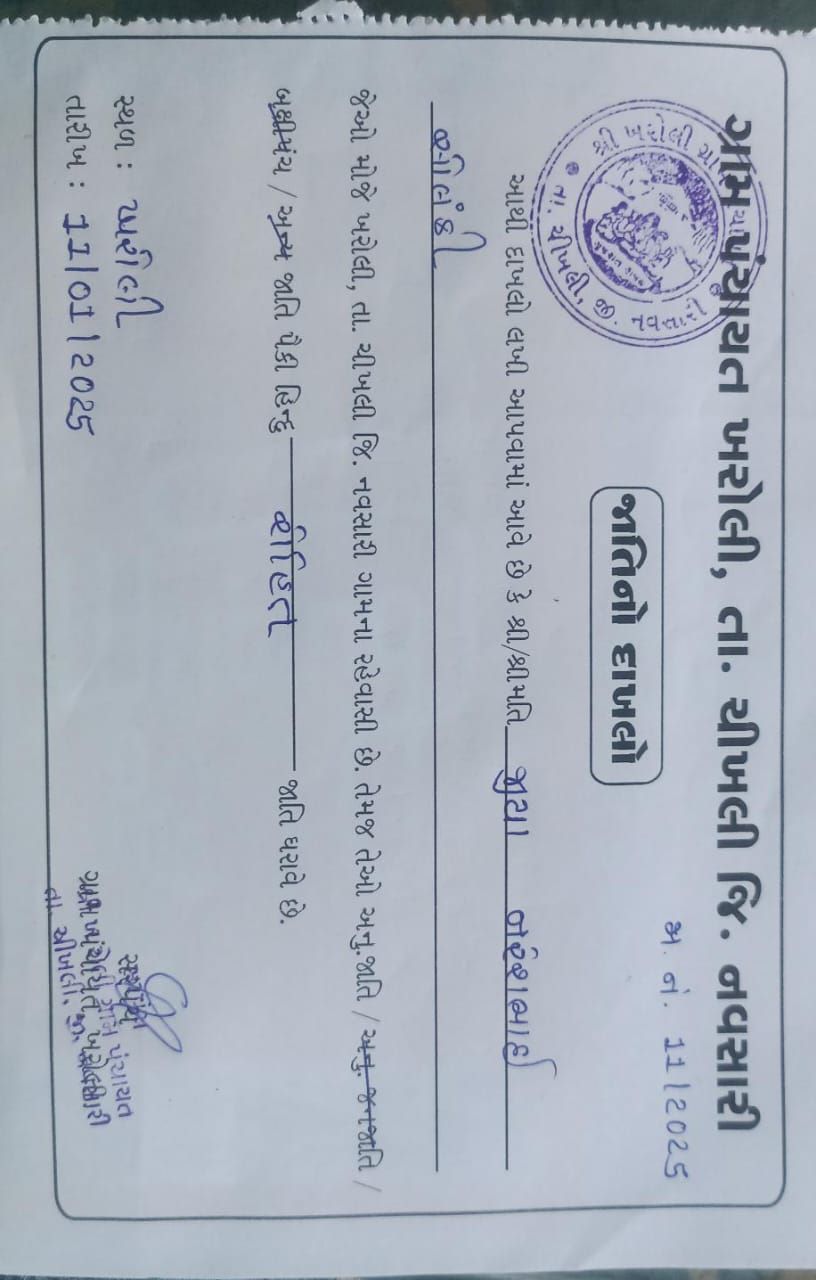 ગ્રામ પંચાયત ખરોલી, તા. ચીખલી જિ. નવસારી
અ. નં. 11/2025
જાતિનો દાખલો
આથી દાખલો લખી આપવામાં આવે છે કે શ્રી/શ્રીમતિ જીયા નરેશભાઈ
સોલંકી
જેઓ મોજે ખરોલી, તા. ચીખલી જિ. નવસારી ગામના રહેવાસી છે. તેમજ તેઓ અનુ.જાતિ / અનુ. જનજાતિ /
બક્ષીપંચ / અન્ય જાતિ પૈકી હિન્દુ રોહિત જાતિ ધરાવે છે.
સ્થળ : ખરોલી
તારીખ : 11/01/2025
સરપંચ
ગ્રામ પંચાયત ખરોલી
તા. ચીખલી. જી. નવસારી
શ્રી ખરોલી
તા. ચીખલી, જી. નવસારી